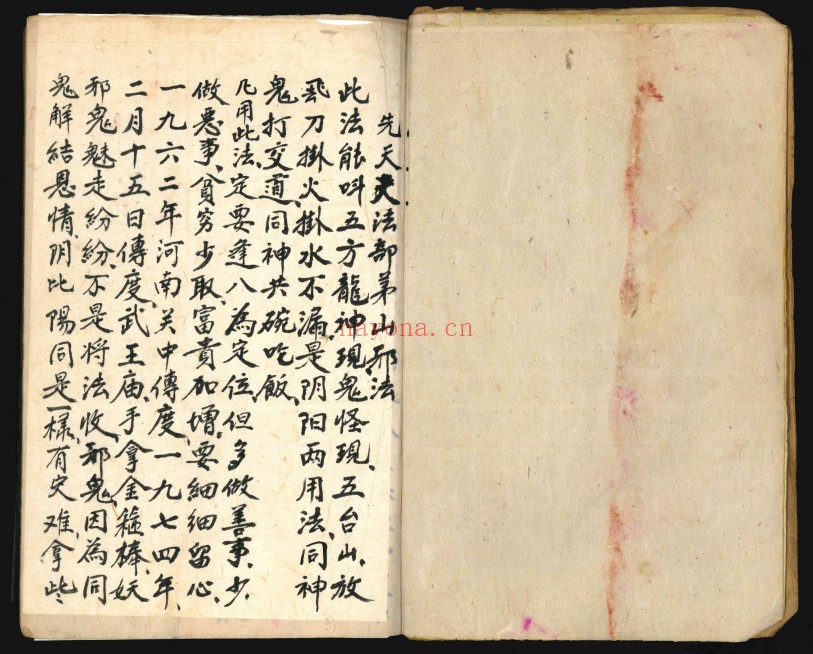 先天灵法部茅山邪法
此法能叫五方龍神現、鬼怪現、五台山、放
飛刀掛火掛水不漏、是阴阳两用法、同神
鬼打交道、同神共碗吃飯、
凡用此法、定要逢八為定位、但多做善事、少
做恶事、貧穷少取、富貴加增、要細細留心、
一九六二年河南关中傳度、一九七四年、
二月十五日傳度、武王庙、手拿金箍棒、妖
邪鬼魅走紛紛、不是将法收、邪鬼因為同
鬼解結恩情、阴比陽同是一樣、有灾难、拿些
nayona.cn